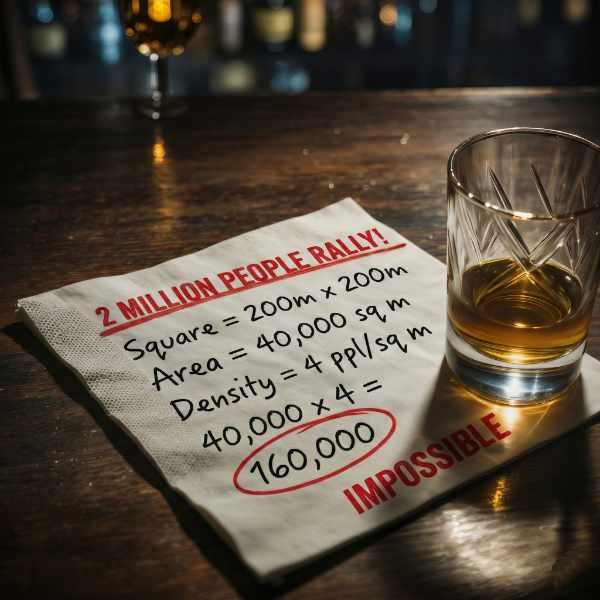 2 MILLION PEOPLE RALLY!
Square = 200m x 200m
Area = 40,000 sq m
Density = 4 ppl/sq m
40,000 x 4 =
160,000
IMPOSSIBLE